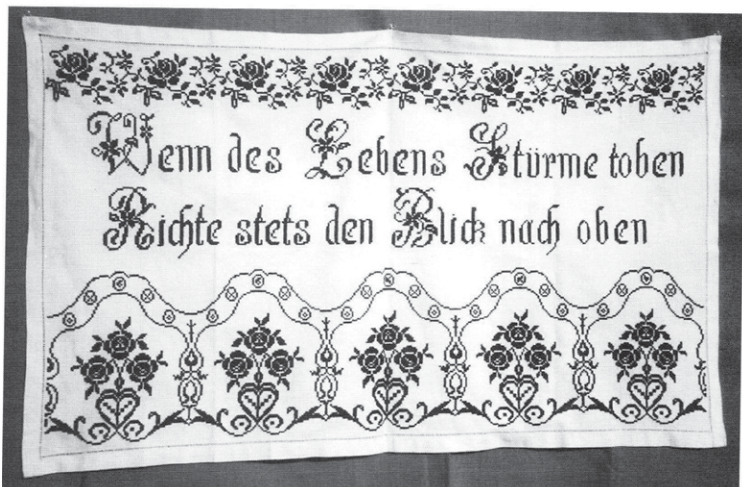 Wenn des Lebens Stürme toben
Richte stets den Blick nach oben